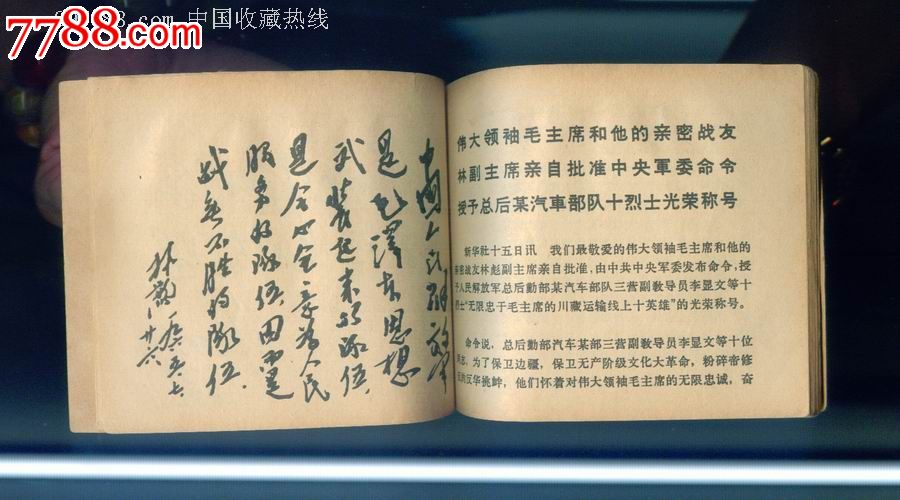 中国收藏热线
7788.com
中國人民解放軍
是毛澤东思想
武裝起来的隊伍,
是全心全意為人民
服务的隊伍,因而是
战无不胜的隊伍.
林彪
一九六五、七、
廿六
伟大领袖毛主席和他的亲密战友
林副主席亲自批准中央軍委命令
授予总后某汽車部队十烈士光荣称号
新华社十五日讯 我们最敬爱的伟大领袖毛主席和他的
亲密战友林彪副主席亲自批准,由中共中央军委发布命令,授
予人民解放军总后勤部某汽车部队三营副教导员李显文等十
烈士“无限忠于毛主席的川藏运输线上十英雄”的光荣称号。
命令说,总后勤部汽车某部三营副教导员李显文等十位
同志,为了保卫边疆,保卫无产阶级文化大革命,粉碎帝修
反的反华挑衅,他们怀着对伟大领袖毛主席的无限忠诚,奋